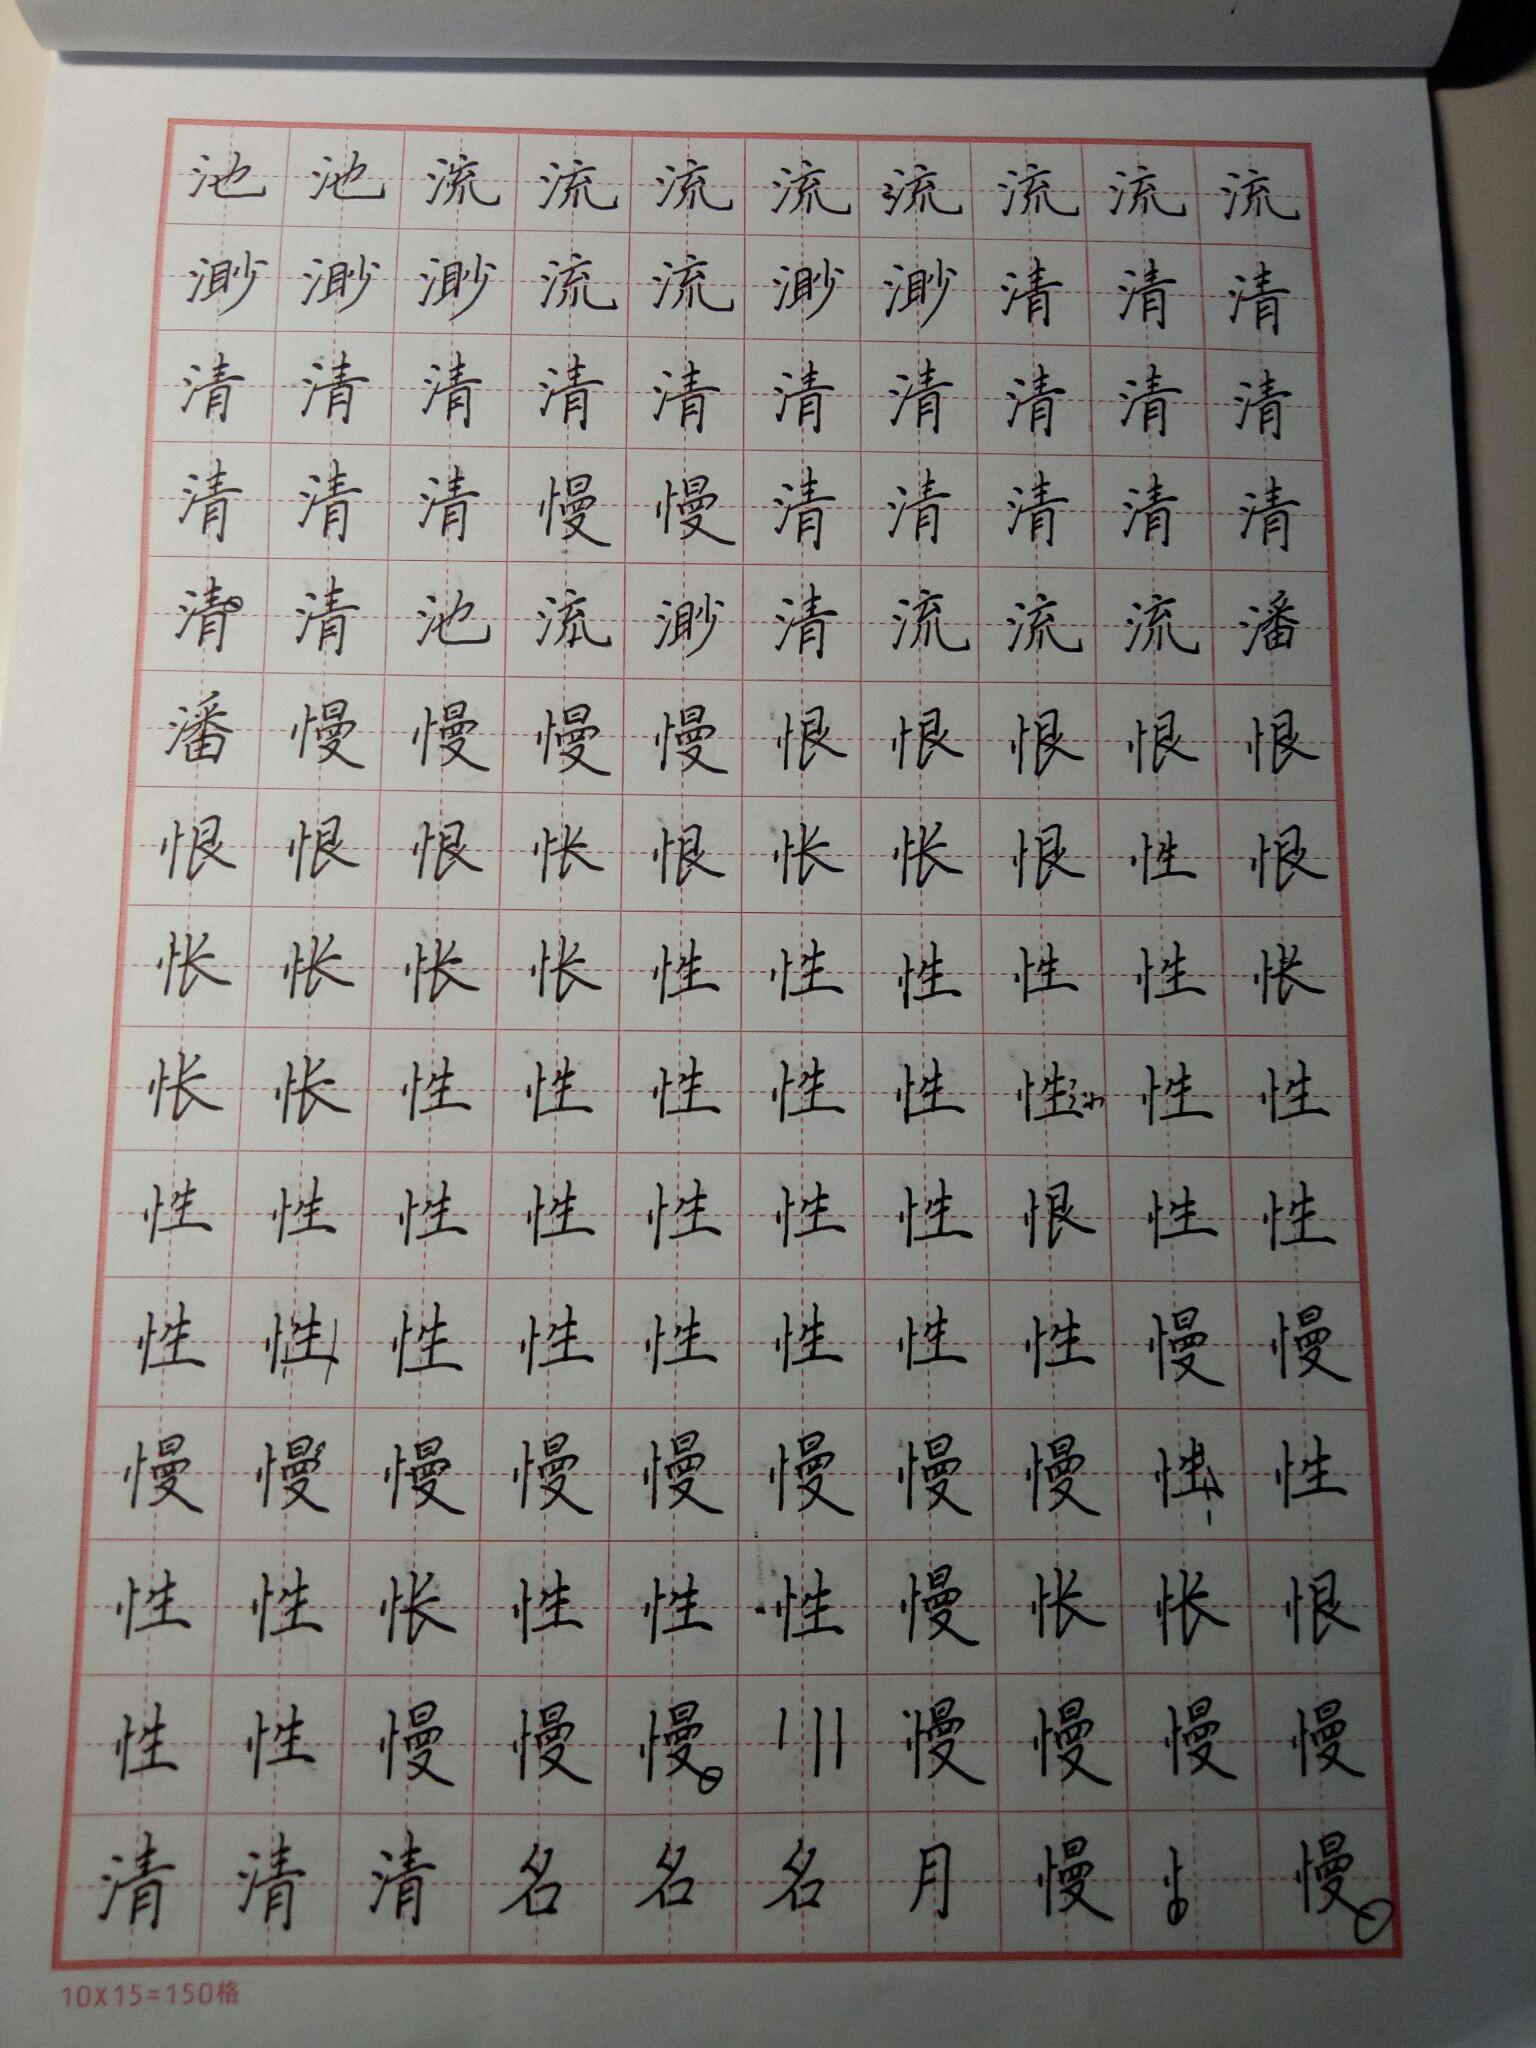 池池流流流流流流流流
渺渺渺流流渺渺清清清
清清清清清清清清清清
清清清慢慢清清清清清
清清池流渺清流流流潘
潘慢慢慢慢恨恨恨恨恨
恨恨恨怅恨怅怅恨性恨
怅怅怅怅性性性性性怅
怅怅性性性性性性性性
性性性性性性性恨性性
性性性性性性性性慢慢
慢慢慢慢慢慢慢慢性性
性性怅性性性慢怅怅恨
性性慢慢慢慢慢慢慢
清清清名名名月慢忄慢
10X15=150格